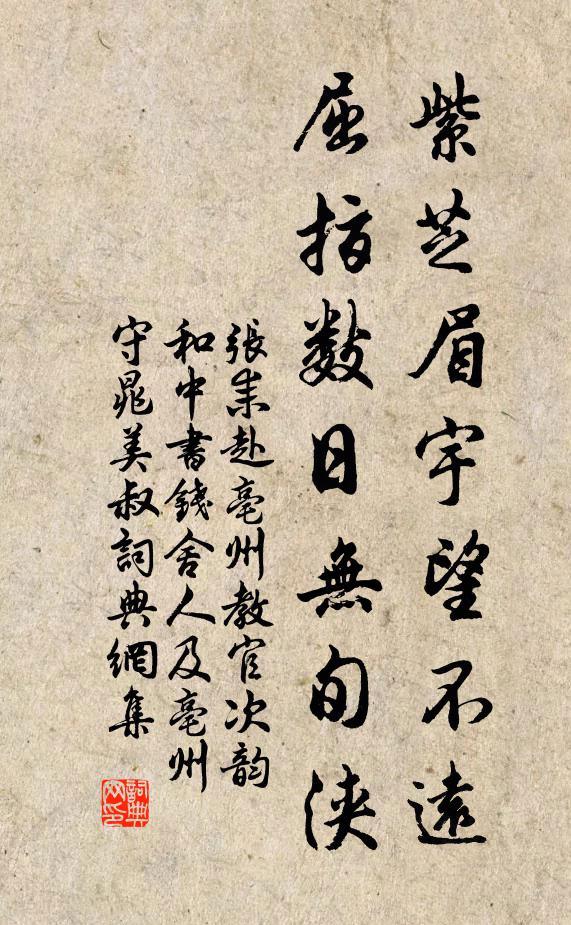 紫芝眉宇望不遠
屈指數日無旬浹
張耒赴亳州教官次韵
和中書錢舍人及亳州
守晁美叔詞典網集
詞典网印